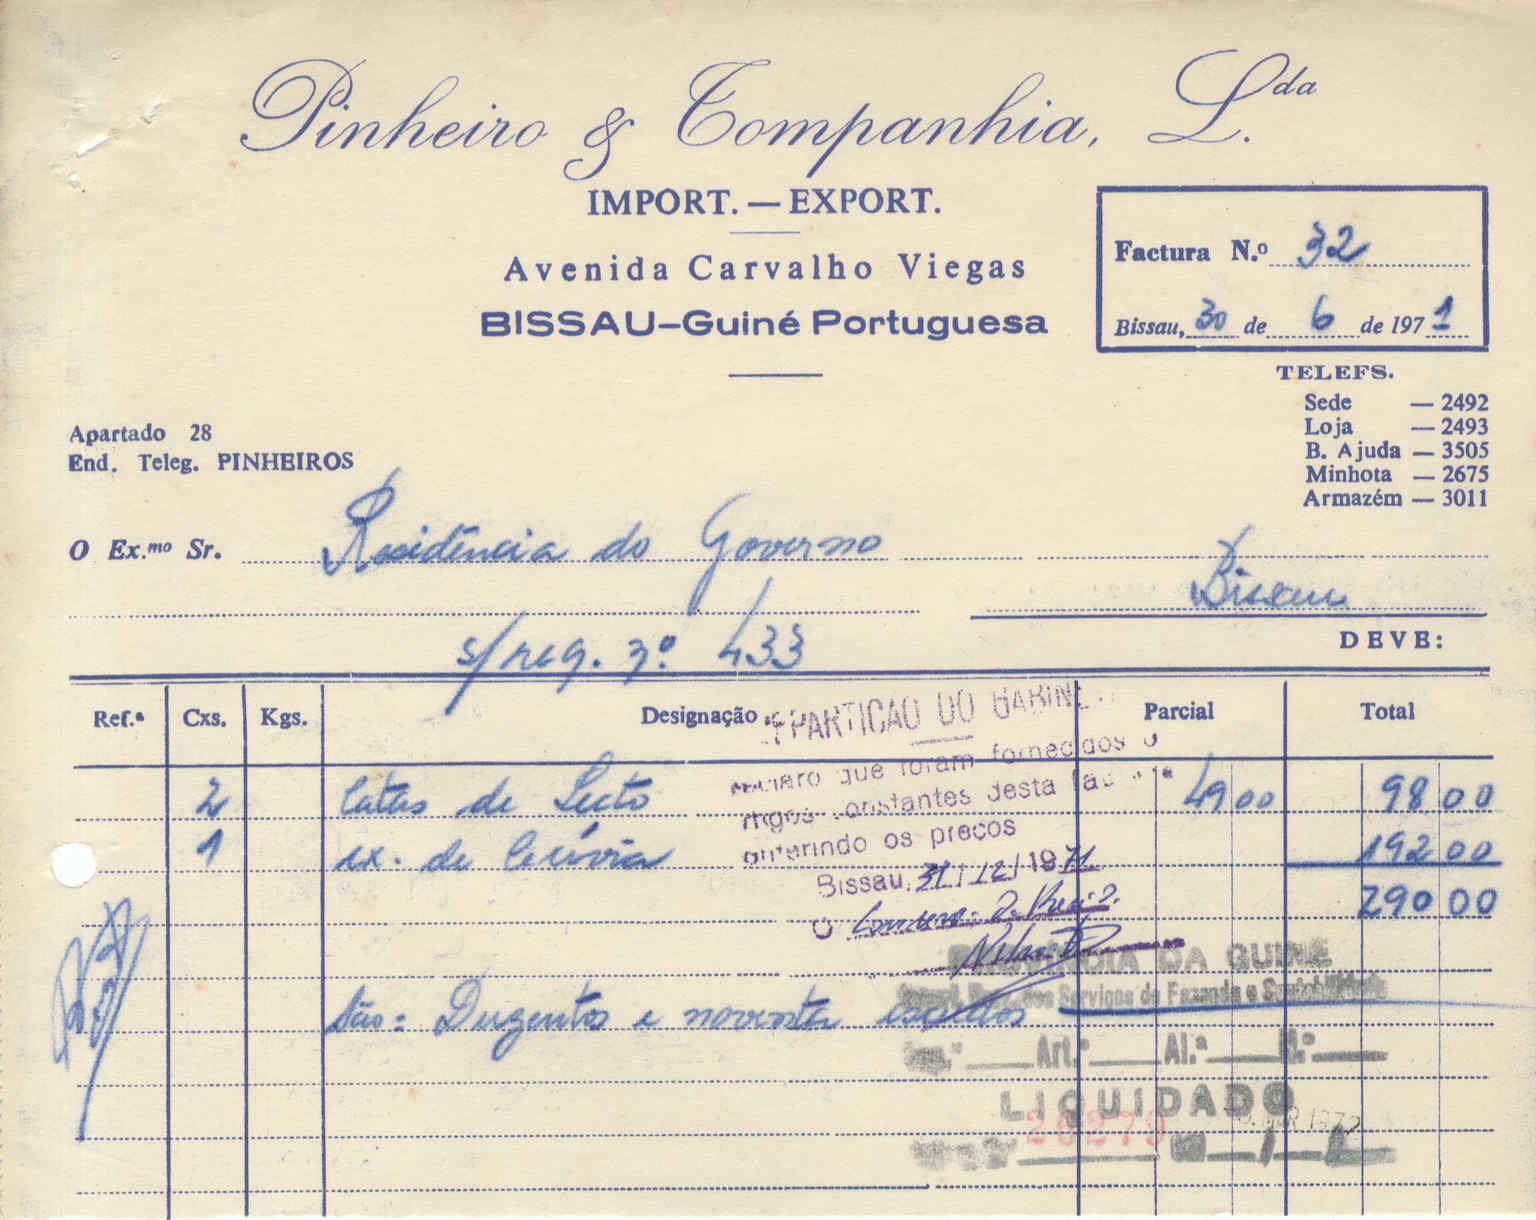 Pinheiro & Companhia, L.da
IMPORT. — EXPORT.
Avenida Carvalho Viegas
BISSAU—Guiné Portuguesa
Factura N.º 32
Bissau, 30 de 6 de 1971
TELEFS.
Sede — 2492
Loja — 2493
B. Ajuda — 3505
Minhota — 2675
Armazém — 3011
Apartado 28
End. Teleg. PINHEIROS
O Ex.mo Sr. Residência do Governo
Bissau
s/ req. nº 433
DEVE:
Ref.ª Cxs. Kgs. Designação Parcial Total
2 latas de 49 00 98 00
1 cx. de 192 00
290 00
São: Duzentos e noventa escudos
que foram fornecidos
constantes desta
os preços
Bissau, 31/12/1971
O
DA GUINÉ
dos Serviços de Fazenda e Contabilidade
Art.º Al.ª N.º
LIQUIDADO
26279 MAR 1972